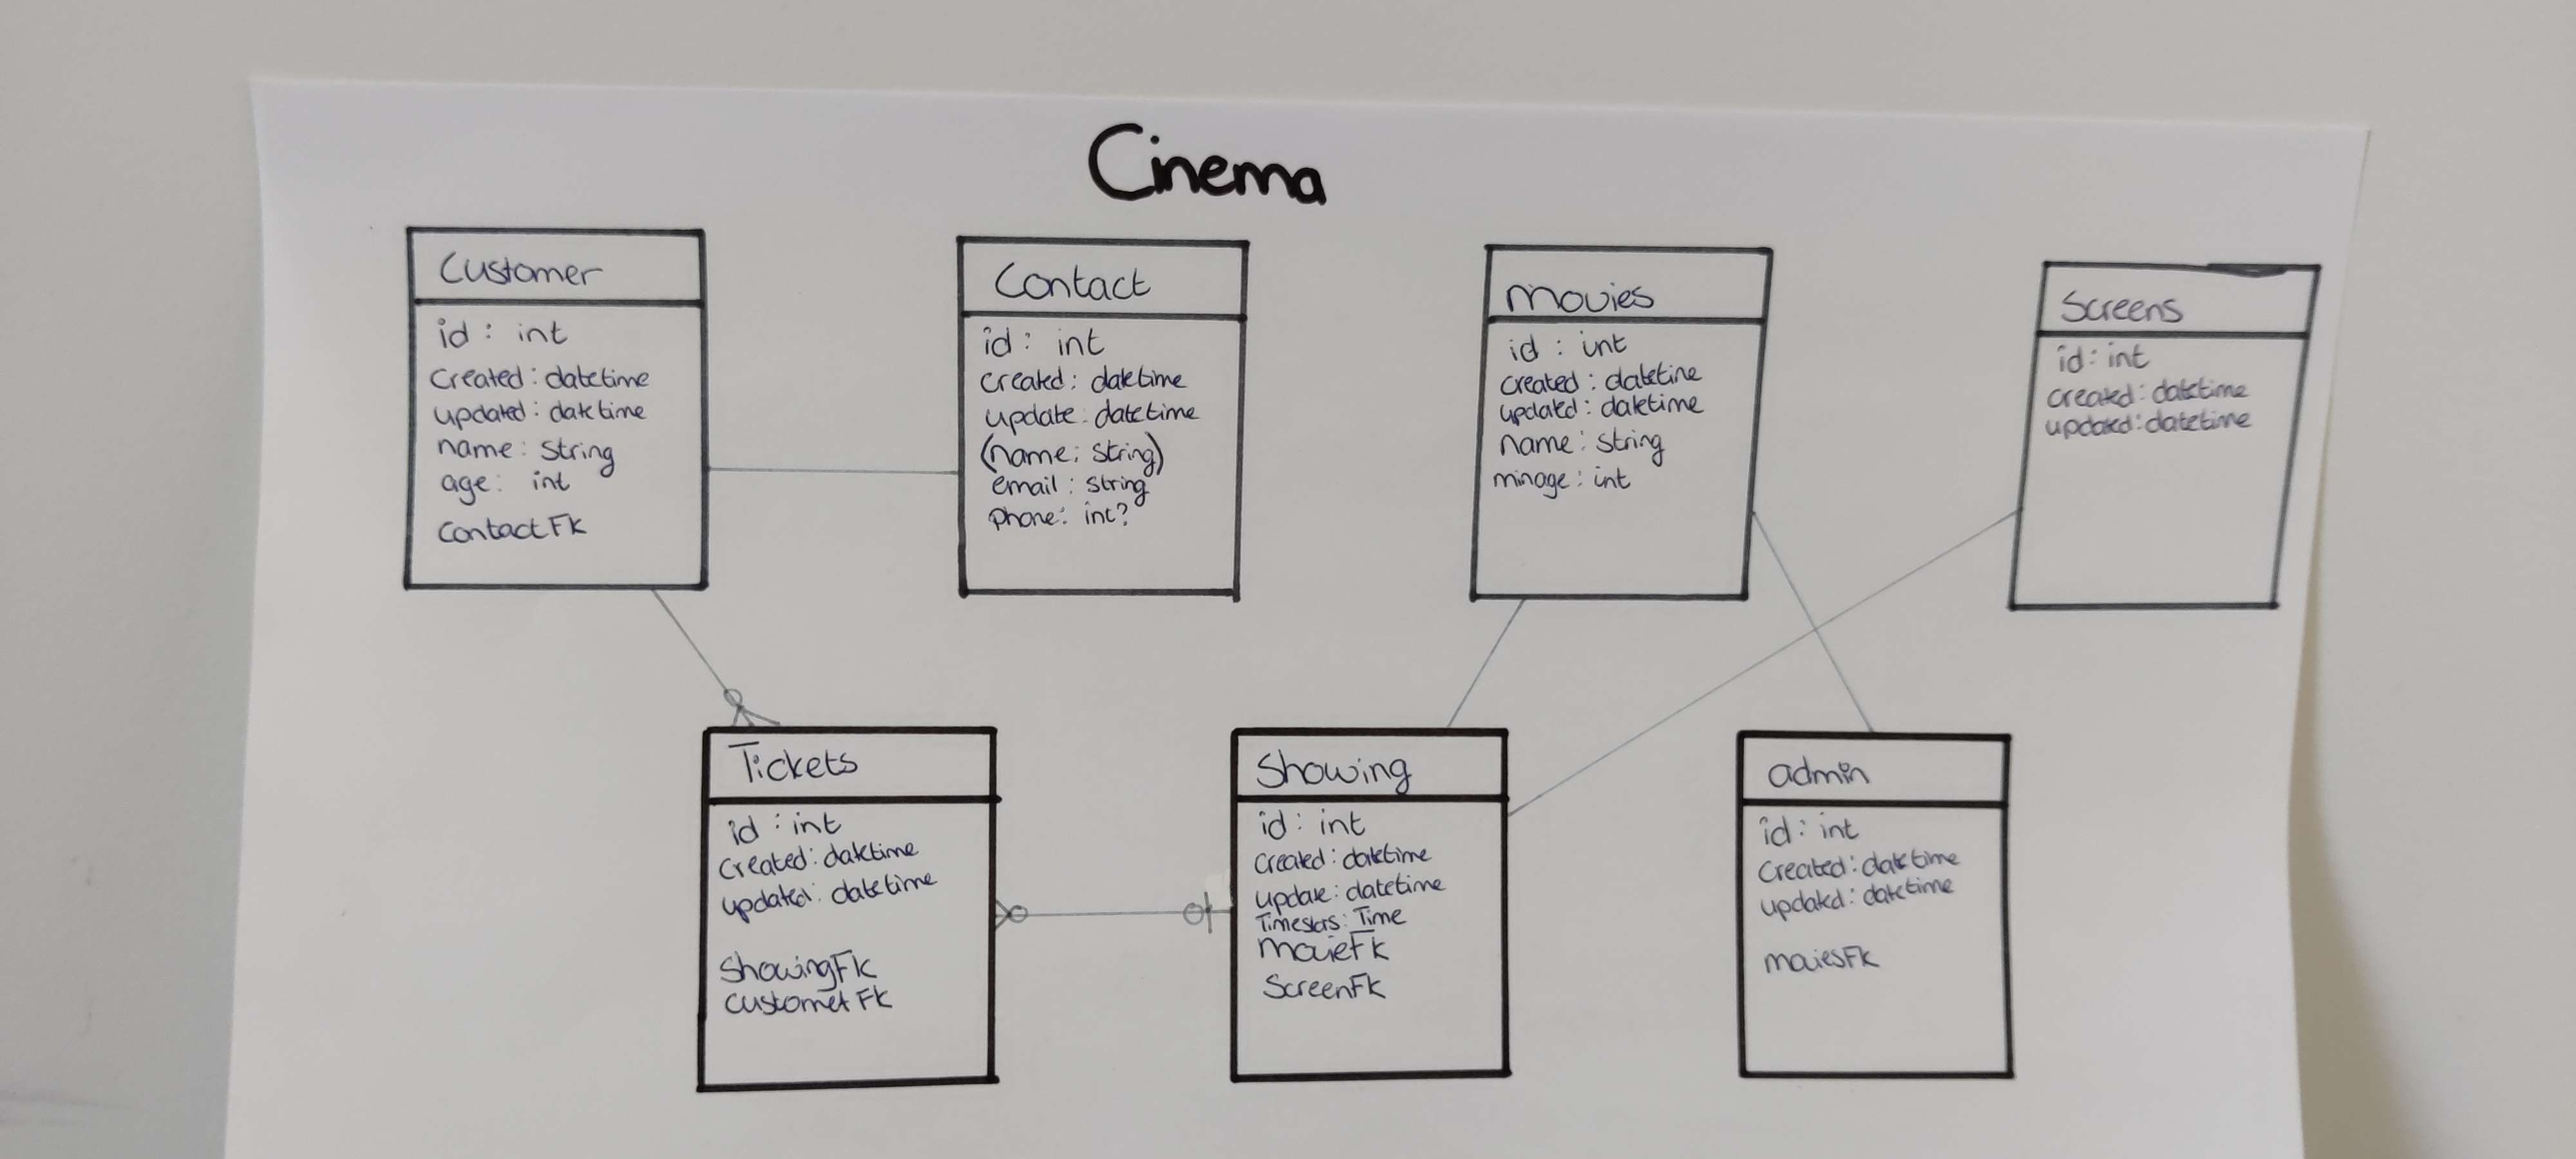 Cinema
Customer
id : int
created : datetime
updated : datetime
name : String
age : int
contactFK
Contact
id : int
created : datetime
update : datetime
(name : string)
email : string
phone : int?
movies
id : int
created : datetime
updated : datetime
name : string
minage : int
Screens
id : int
created : datetime
updated : datetime
Tickets
id : int
created : datetime
updated : datetime
ShowingFK
customerFK
Showing
id : int
created : datetime
update : datetime
: Time
movieFK
ScreenFK
admin
id : int
created : datetime
updated : datetime
moviesFK